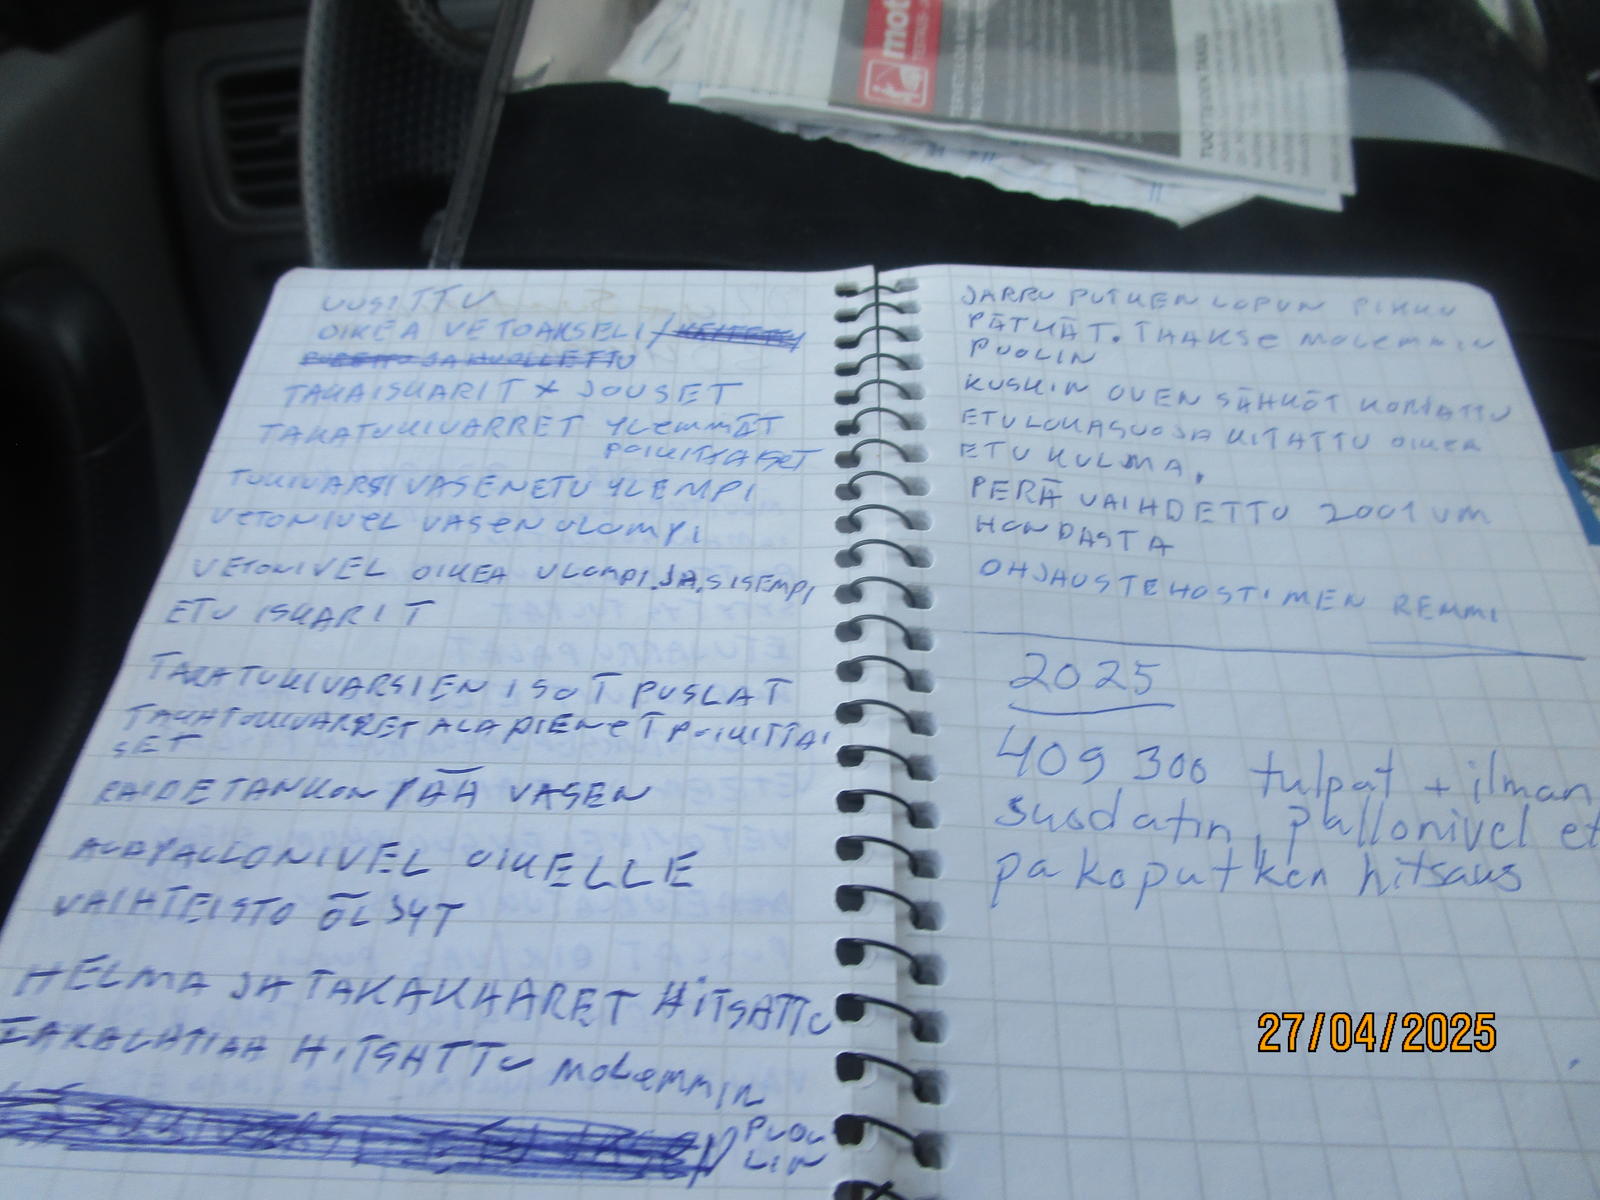 mot
TUOTEVERTAILU
UUSITTU
OIKEA VETOAKSELI /
JA HUOLLETTU
TAKAISKARIT + JOUSET
TAKATUKIVARRET YLEMMÄT
POIKITTAISET
TUKIVARSI VASEN ETU YLEMPI
VETONIVEL VASEN ULOMPI
VETONIVEL OIKEA ULOMPI JA SISEMPI
ETU ISKARIT
TAKATUKIVARSIEN ISOT PUSLAT
TAKATUKIVARRET ALA PIENET POIKITTAI
SET
RAIDETANKON PÄÄ VASEN
ALAPALLONIVEL OIKELLE
VAIHTEISTO ÖLJYT
HELMA JA TAKAKAARET HITSATTU
TAKALATIAA HITSATTU MOLEMMIN
PUOL
LIN
JARRU PUTKEN LOPUN PIKKU
PÄTKÄT. TAAKSE MOLEMMIN
PUOLIN
KUSKIN OVEN SÄHKÖT KORJATTU
ETULOKASUOJA KITATTU OIKEA
ETU KULMA.
PERÄ VAIHDETTU 2001 VM
HONDASTA
OHJAUSTEHOSTIMEN REMMI
2025
409 300 tulpat + ilman
suodatin, pallonivel et
pakoputken hitsaus
27/04/2025